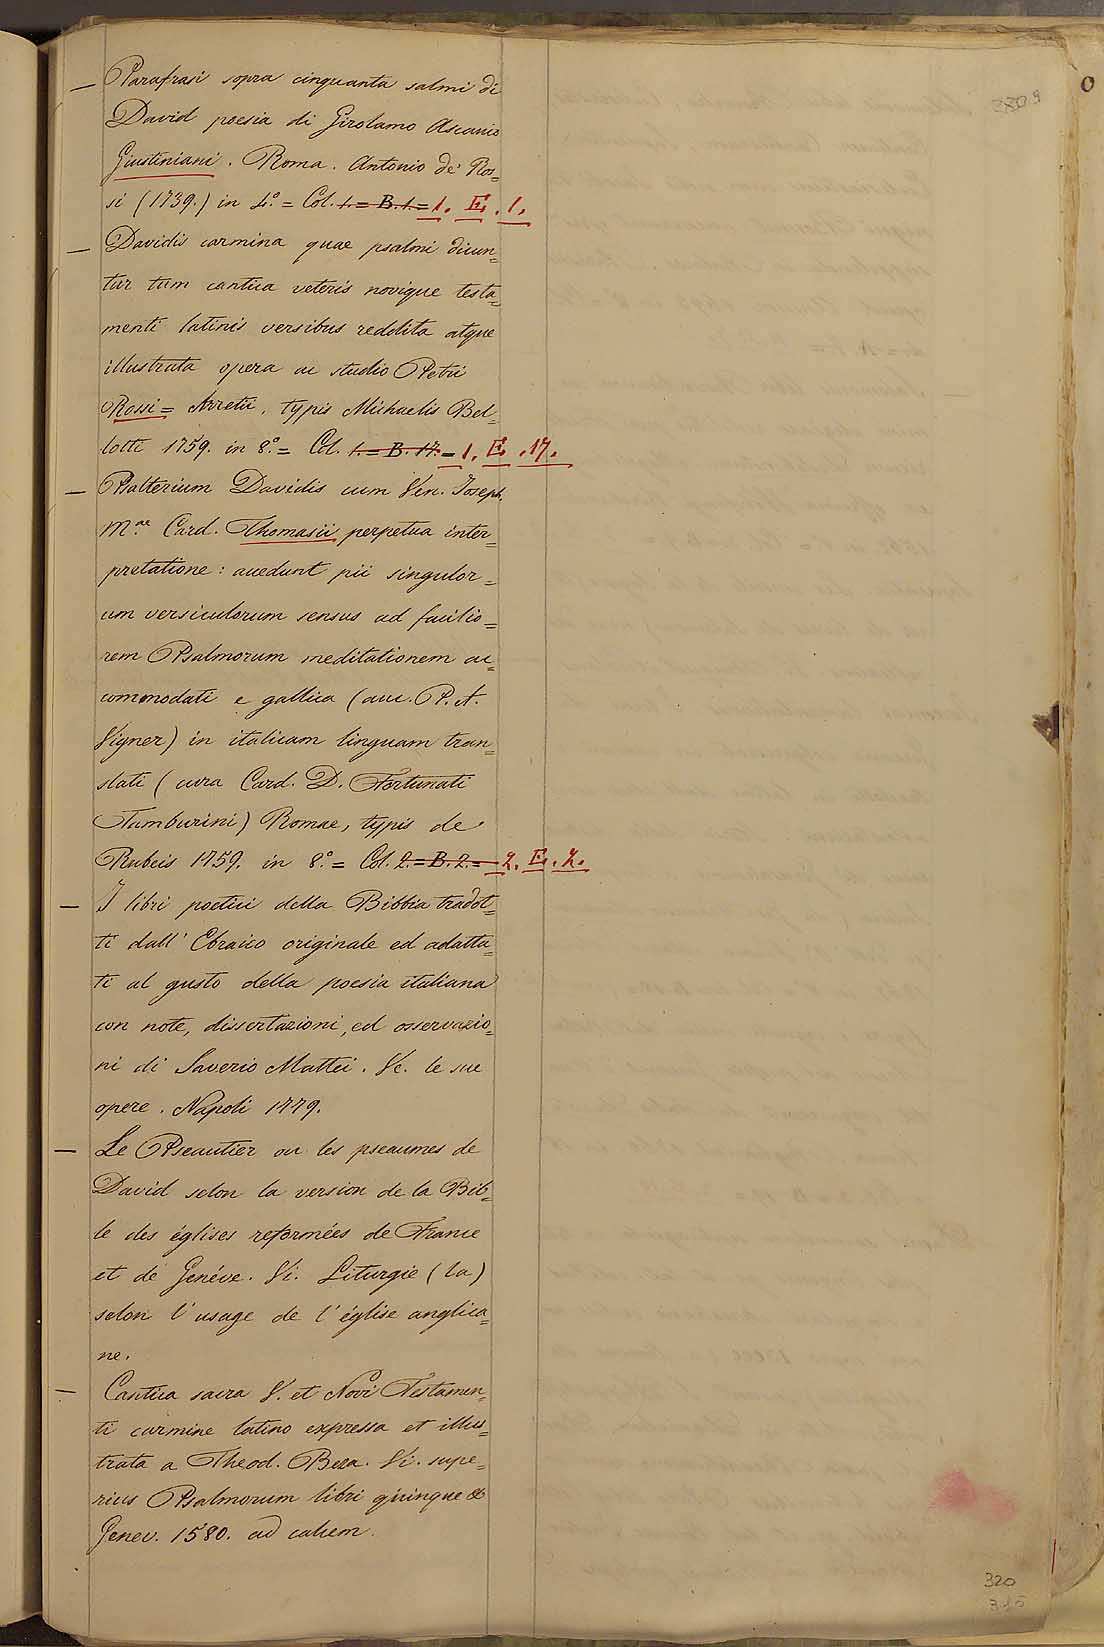 — Parafrasi sopra cinquanta salmi di
David poesia di Girolamo Ascanio
Giustiniani. Roma. Antonio de' Ros=
si (1739.) in 4.° = Col. 1. = B. 1. = 1. E. 1.
— Davidis carmina quae psalmi dicun=
tur tum cantica veteris novique testa=
menti latinis versibus reddita atque
illustrata opera ac studio Petri
Rossi = Arretii, typis Michaelis Bel=
lotti 1759. in 8.° = Col. 1. = B. 17. = 1. E. 17.
— Psalterium Davidis cum Ven. Joseph.
M.ae Card. Thomasii perpetua inter=
pretatione: accedunt pii singulor=
um versiculorum sensus ad facilio=
rem Psalmorum meditationem ac=
commodati e gallica (auc. P. A.
Vigner) in italicam linguam tran=
slati (cura Card. D. Fortunati
Tamburini) Romae, typis de
Rubeis 1759. in 8.° = Col. 2. = B. 2. = 2. E. 2.
— I libri poetici della Bibbia tradot=
ti dall' Ebraico originale ed adatta=
ti al gusto della poesia italiana
con note, dissertazioni, ed osservazio=
ni di Saverio Mattei. Ve. le sue
opere. Napoli 1779.
— Le Pseautier ou les pseaumes de
David selon la version de la Bib=
le des églises reformées de France
et de Genéve. Vi. Liturgie (la)
selon l'usage de l'église anglica=
ne.
— Cantica sacra V. et Novi Testamen=
ti carmine latino expressa et illus=
trata a Theod. Beza. Vi. supe=
rius Psalmorum libri quinque &
Genev. 1580. ad calcem.
320